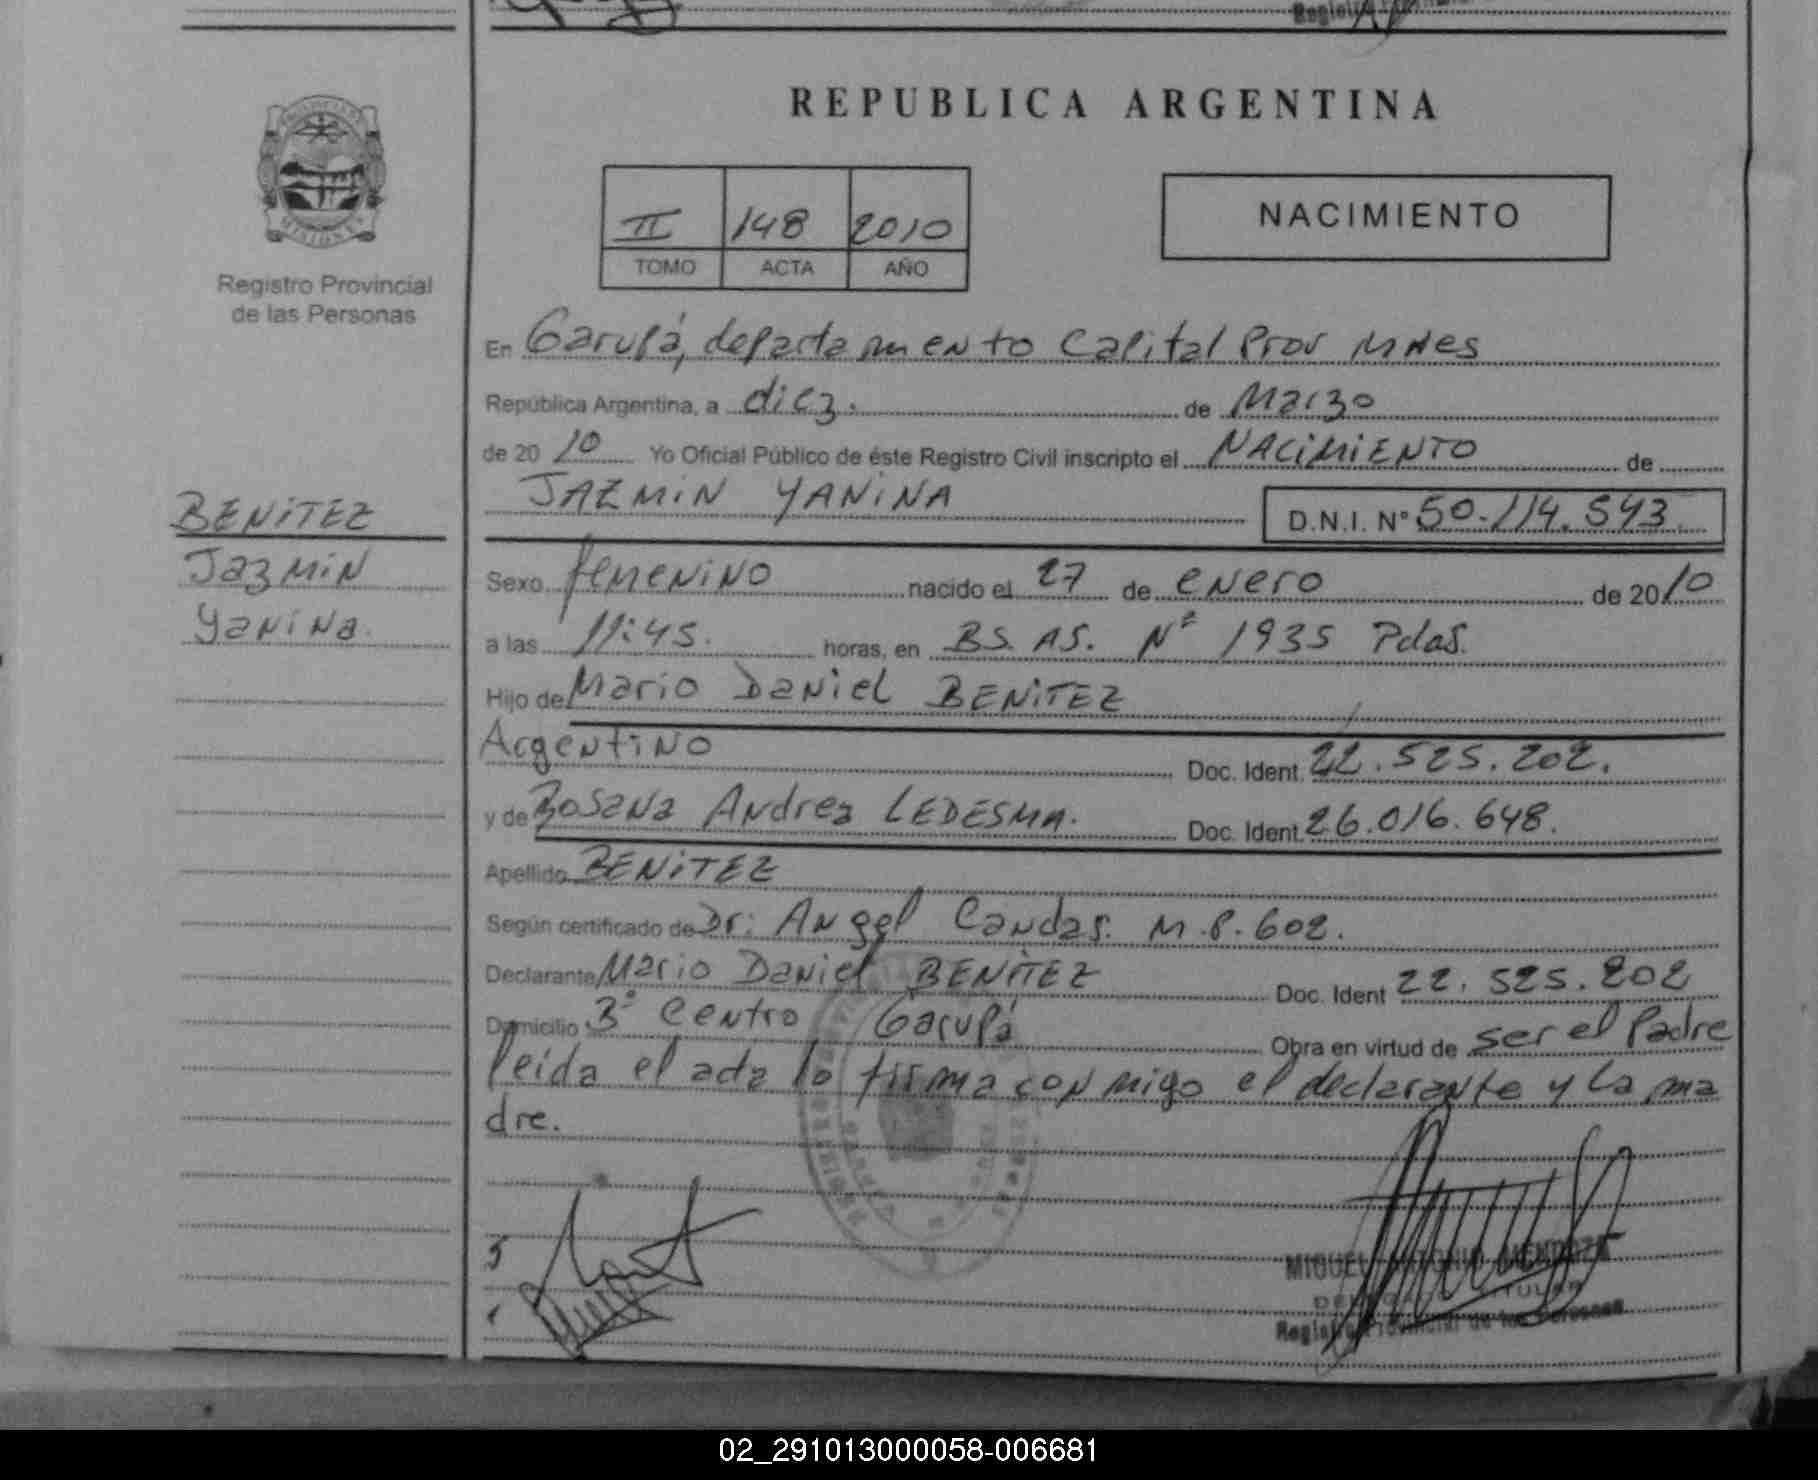 REPUBLICA ARGENTINA
MISIONES
Registro Provincial
de las Personas
II 148 2010
TOMO ACTA AÑO
NACIMIENTO
En Garupá, departamento Capital Prov Mnes
República Argentina, a diez. de Marzo
de 20 10 Yo Oficial Público de éste Registro Civil inscripto el NACIMIENTO de
JAZMIN YANINA
D.N.I. N° 50.114.543
BENITEZ
Jazmin
Yanina.
Sexo femenino nacido el 27 de enero de 2010
a las 11:45. horas, en BS. AS. N° 1935 Pdas.
Hijo de Mario Daniel BENITEZ
Argentino Doc. Ident. 22.525.202.
y de Rosana Andrea LEDESMA. Doc. Ident. 26.016.648.
Apellido BENITEZ
Según certificado de Dr: Angel Candas. M.P. 602.
Declarante Mario Daniel BENITEZ Doc. Ident 22.525.202
Domicilio B° Centro Garupá Obra en virtud de ser el Padre
leida el acta lo firma conmigo el declarante y la ma
dre.
MIGUEL ANTONIO MENDOZA
DELEGADO TITULAR
Registro Provincial de las Personas
02_291013000058-006681